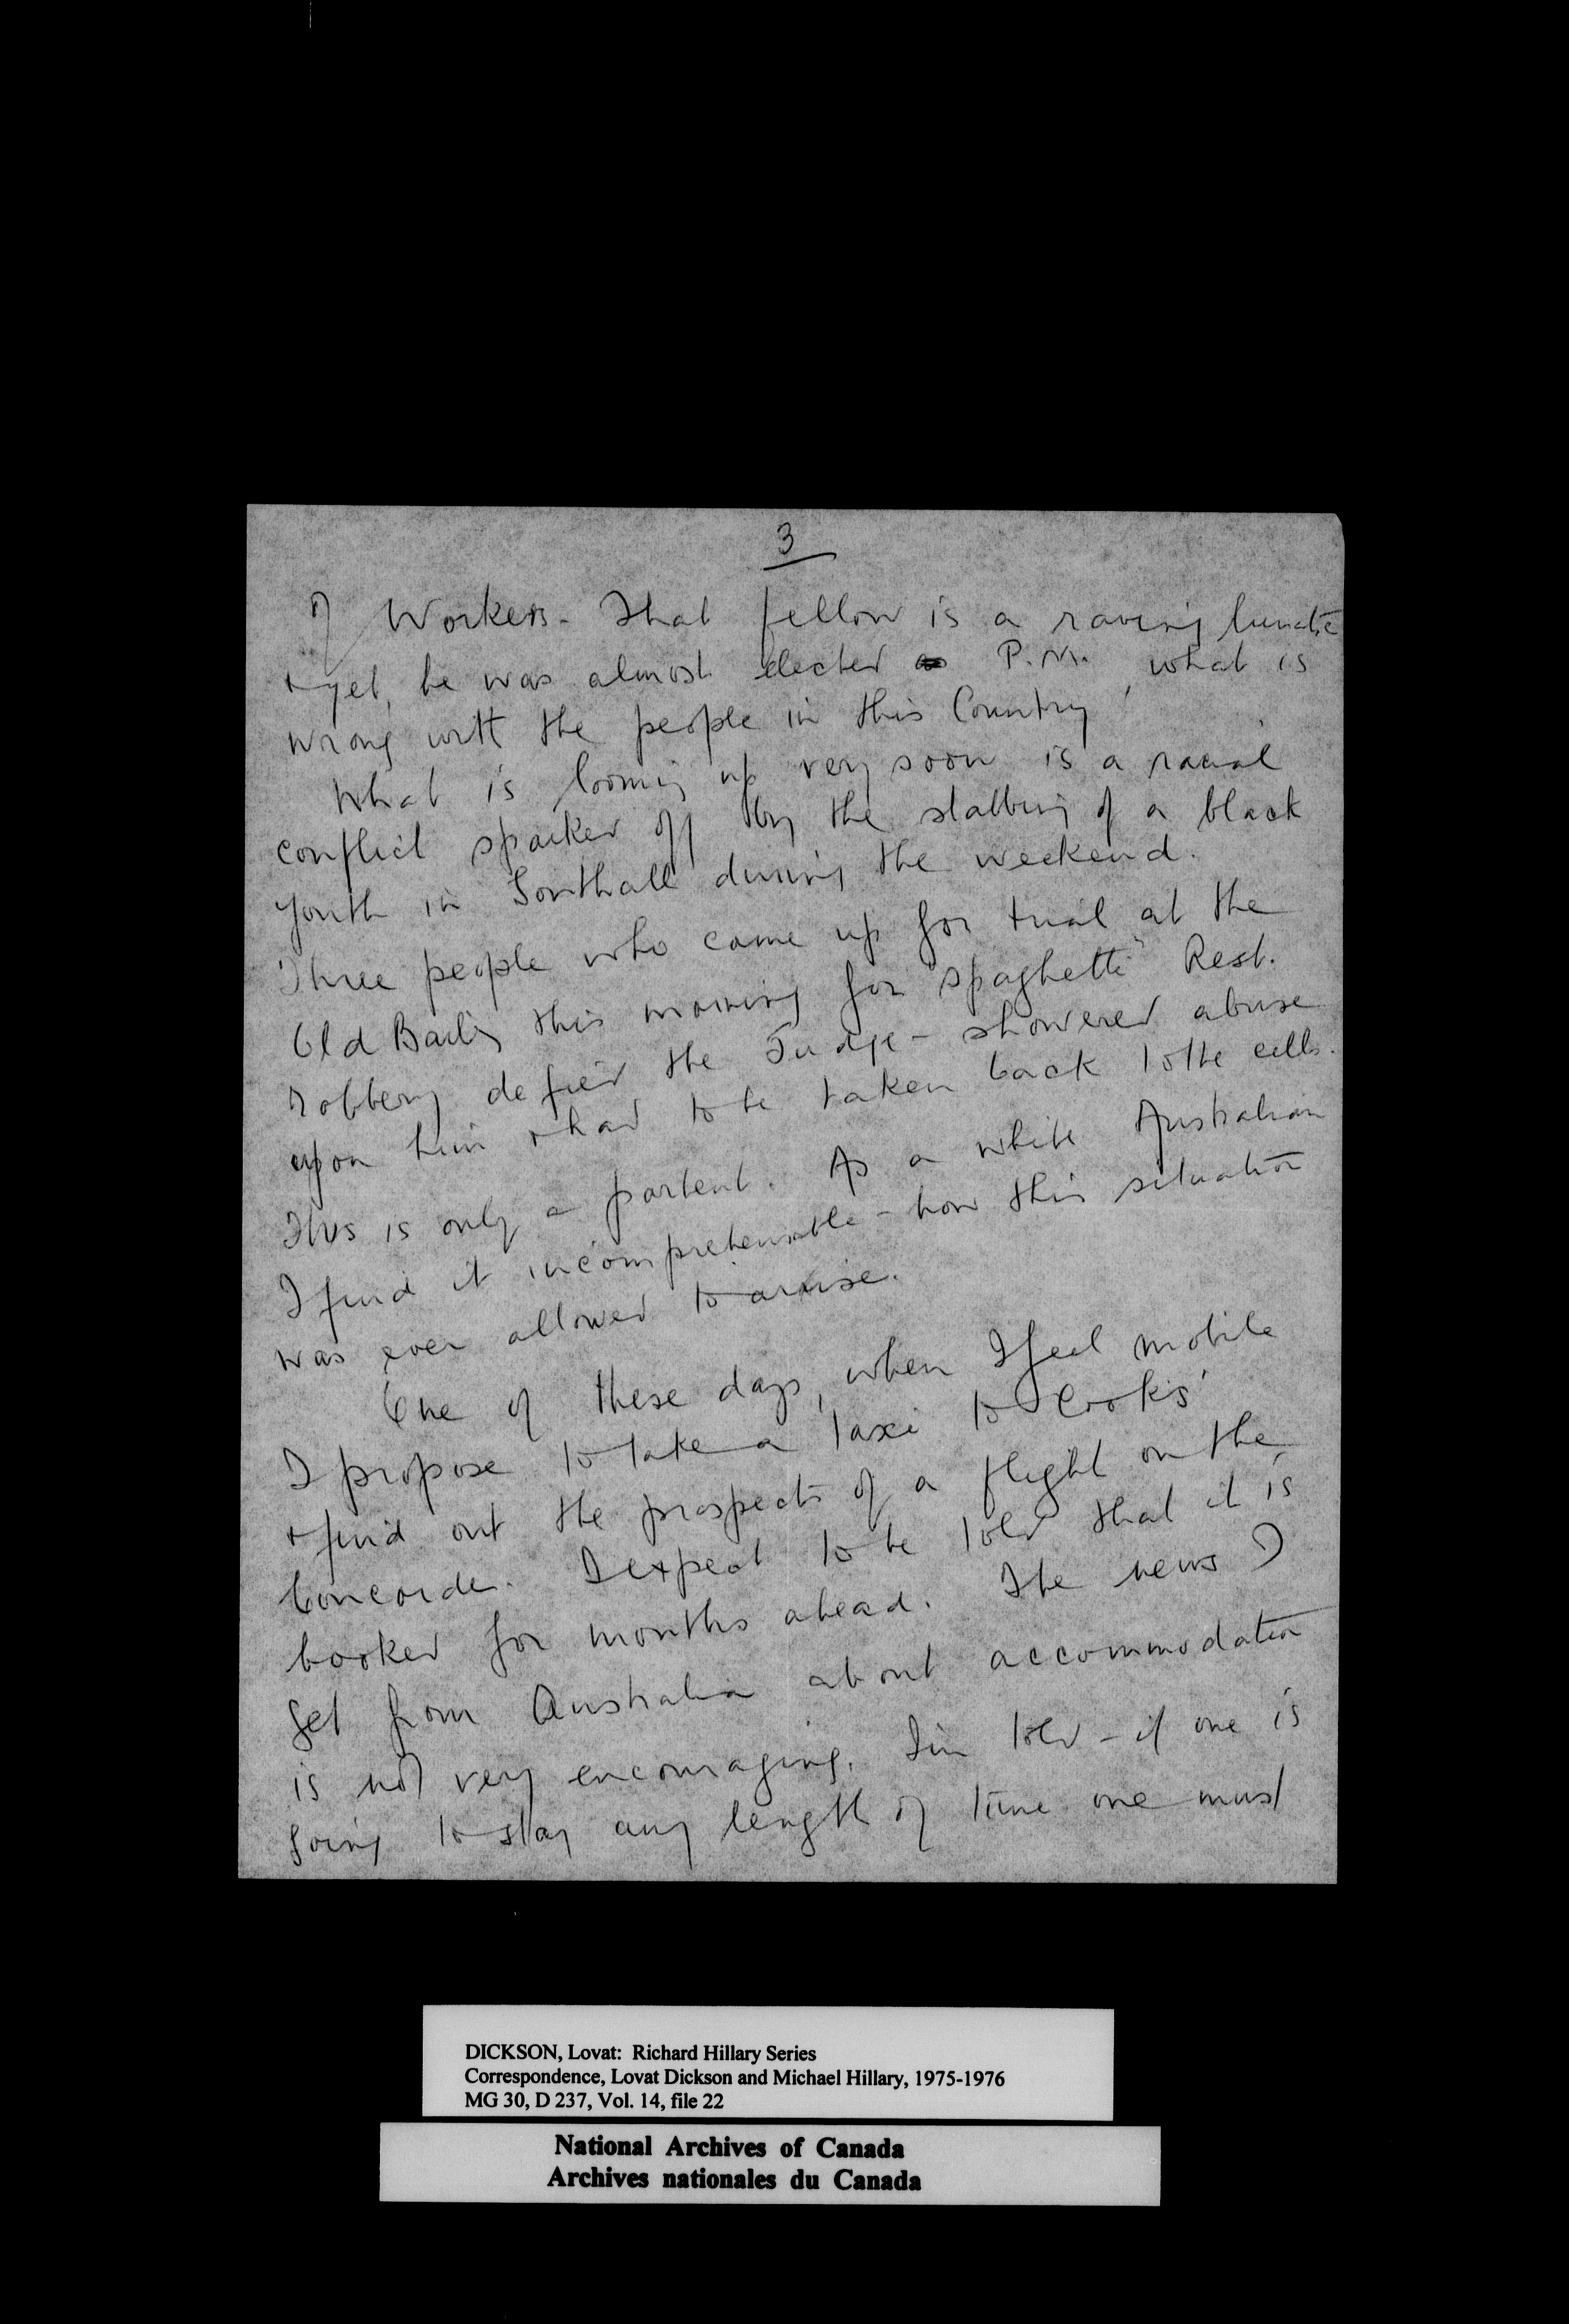 3
of Workers - That fellow is a raving lunatic
+ yet, he was almost elected as P.M., what is
wrong with the people in this Country
What is looming up very soon is a racial
conflict sparked off by the stabbing of a black
youth in Southall during the weekend.
Three people who came up for trial at the
Old Bailey this morning for "spaghetti" Rest.
robbery defied the Judge - showered abuse
upon him + had to be taken back to the cells.
This is only a portent. As a white Australian
I find it incomprehensable - how this situation
was ever allowed to arise.
One of these days, when I feel mobile
I propose to take a taxi to Cooks'
+ find out the prospects of a flight on the
Concorde. I expect to be told that it is
booked for months ahead. The news I
get from Australia about accommodation
is not very encouraging. I'm told - if one is
going to stay any length of time one must
DICKSON, Lovat: Richard Hillary Series
Correspondence, Lovat Dickson and Michael Hillary, 1975-1976
MG 30, D 237, Vol. 14, file 22
National Archives of Canada
Archives nationales du Canada